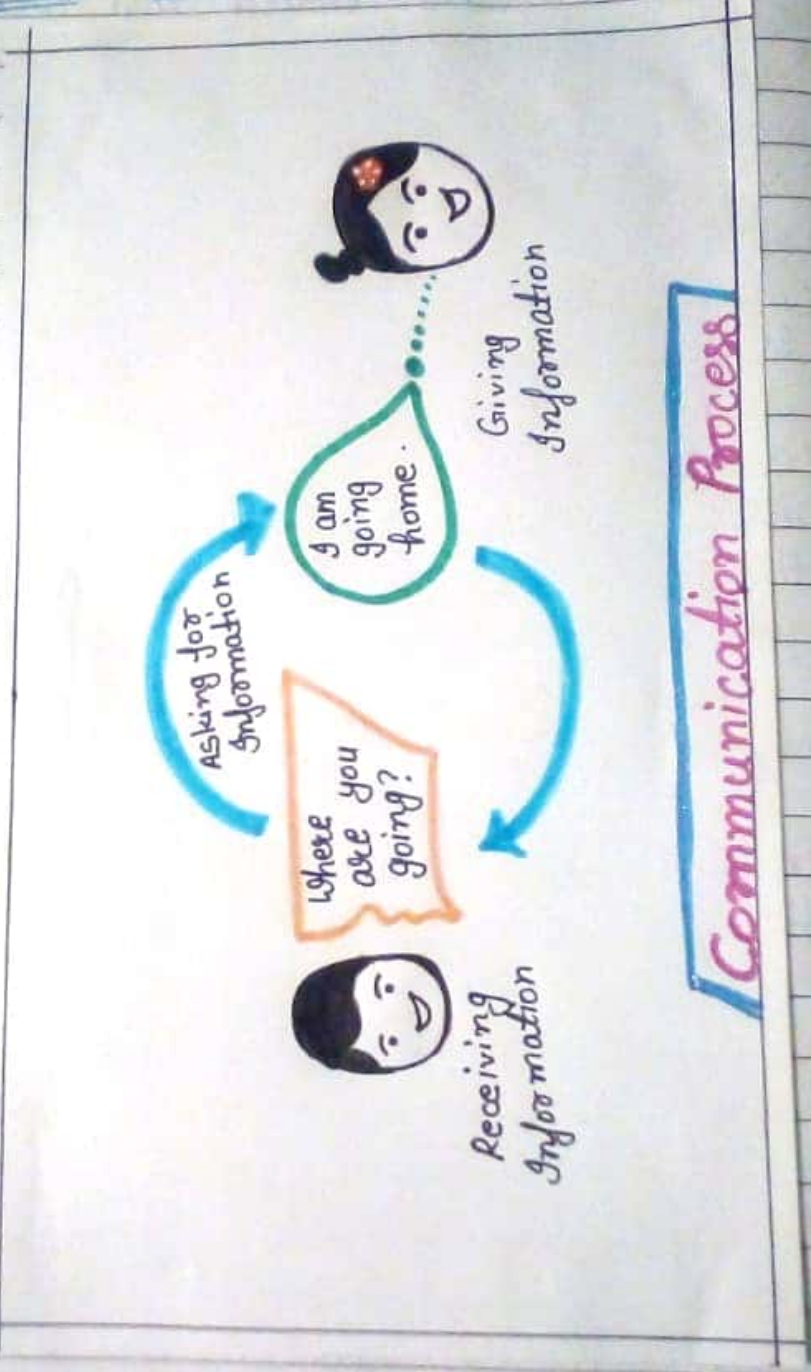 Asking for
Information
Where
are you
going?
I am
going
home.
Receiving
Information
Giving
Information
Communication Process